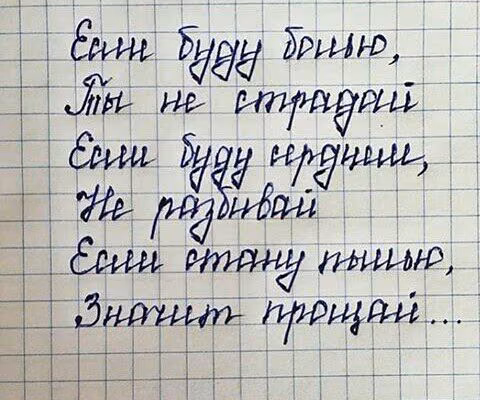 Если буду болью,
Ты не страдай
Если буду сердцем,
Не разбивай
Если стану пылью,
Значит прощай...